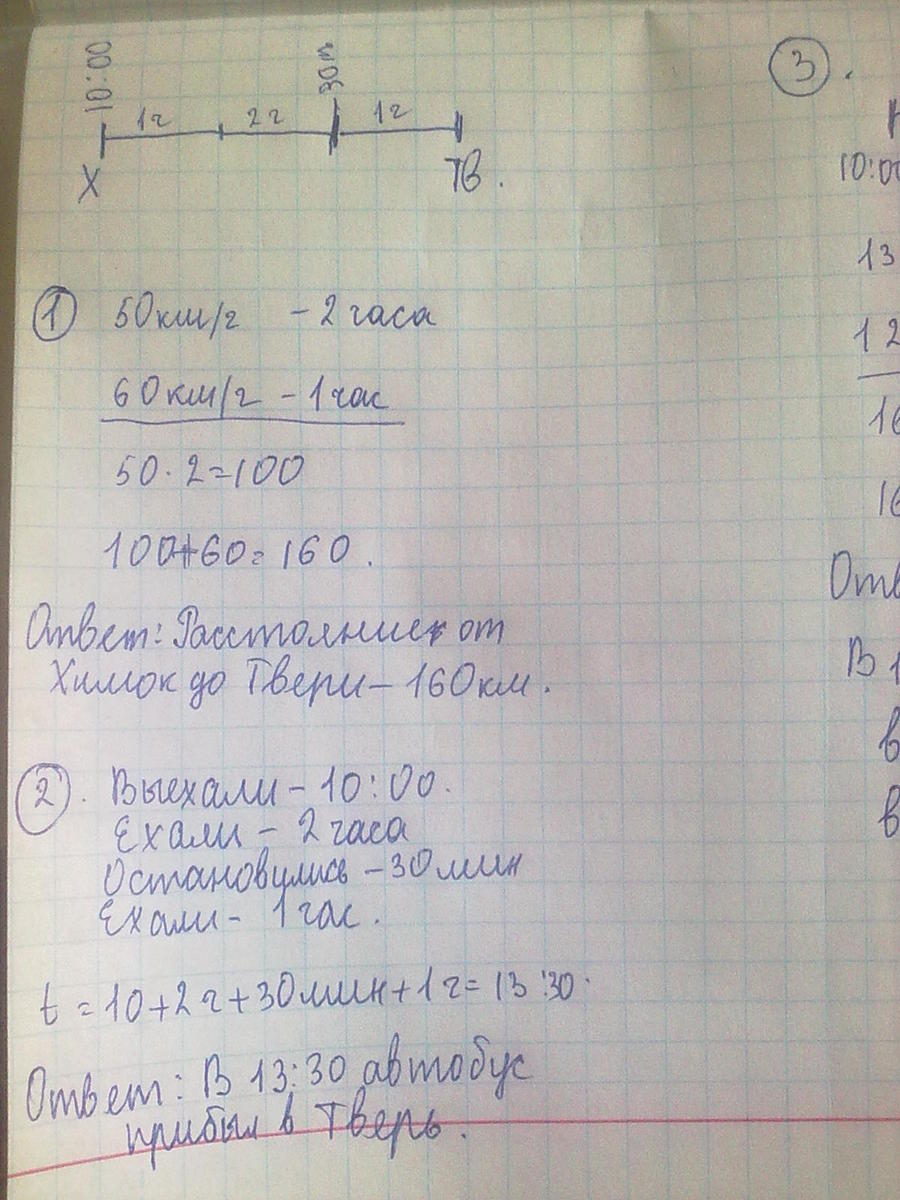 10:00
1ч 2ч 30м 1ч
Х Тв.
① 50км/ч - 2 часа
60км/ч - 1 час
50 · 2 = 100
100 + 60 = 160.
Ответ: Расстояние от
Химок до Твери - 160 км.
②. Выехали - 10:00.
Ехали - 2 часа
Остановулись - 30 мин
Ехали - 1 час.
t = 10 + 2 ч + 30 мин + 1 ч = 13:30.
Ответ: В 13:30 автобус
прибыл в Тверь.
③.
10:00
13
12
16
16
Отв
В 1
в
в